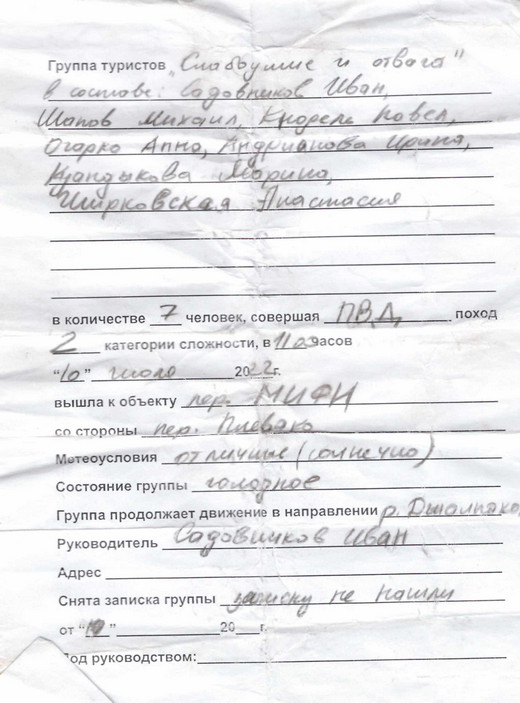 Группа туристов „Слабоумие и отвага"
в составе: Садовников Иван,
Шапов Михаил, Кнодель Павел,
Огарко Анна, Андрианова Ирина,
Марина,
Анастасия
в количестве 7 человек, совершая ПВД, поход
2 категории сложности, в 11 часов
"10" июля 2022г.
вышла к объекту пер. МИФИ
со стороны пер. Плевако
Метеоусловия отличные (солнечно)
Состояние группы голодное
Группа продолжает движение в направлении р. Джалпако
Руководитель Садовников Иван
Адрес
Снята записка группы записку не нашли
от "10" 20 г.
Под руководством: